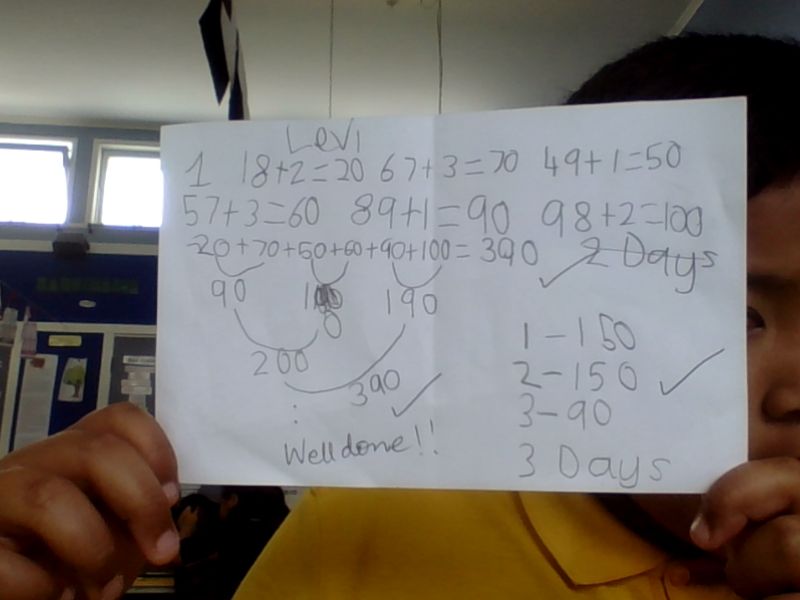 Levi
1 18+2=20 67+3=70 49+1=50
57+3=60 89+1=90 98+2=100
20+70+50+60+90+100=390 2 Days
90 110 190
200
390
Well done!!
1-150
2-150
3-90
3 Days